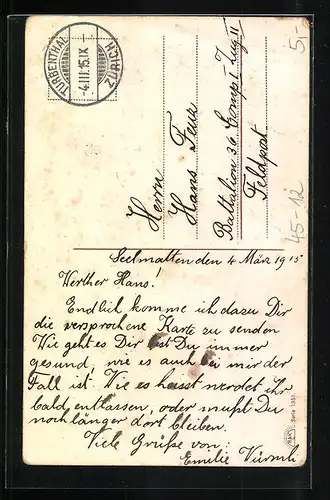 TURBENTHAL
-4.III.15.IX-
(ZÜRICH)
5,-
Herrn
Hans Feus
Battalion 36 Comp. I Zug II
Feldpost
45-12
Seelmatten den 4 März 1915
Werther Hans!
Endlich komme ich dazu Dir
die versprochene Karte zu senden
Wie geht es Dir bist Du immer
gesund, wie es auch bei mir der
Fall ist. Wie es heisst werdet ihr
bald entlassen, oder mußt Du
noch länger dort bleiben.
Viele Grüße von:
Emilie
Serie